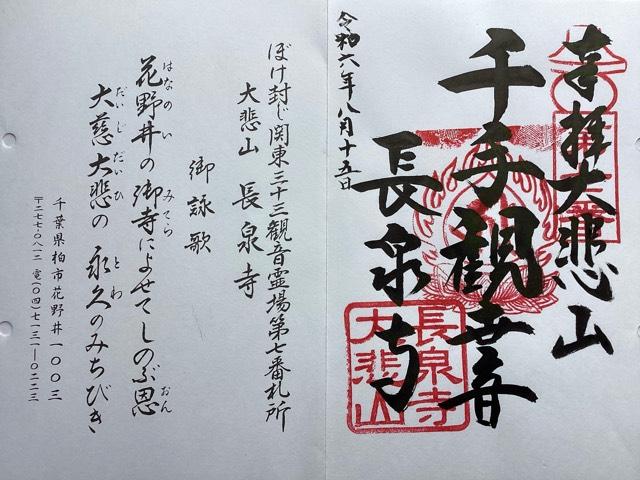 奉拝 大悲山
千手観世音
長泉寺
令和六年八月十五日
長泉寺
大悲山
ぼけ封じ関東三十三観音霊場第七番札所
大悲山 長泉寺
御詠歌
花野井の御寺によせてしのぶ恩
はなのい みてら おん
大慈大悲の 永久のみちびき
だいじだいひ とわ
千葉県柏市花野井一〇〇三
〒二七七-〇八一二 電(〇四)七一三一-〇二二三